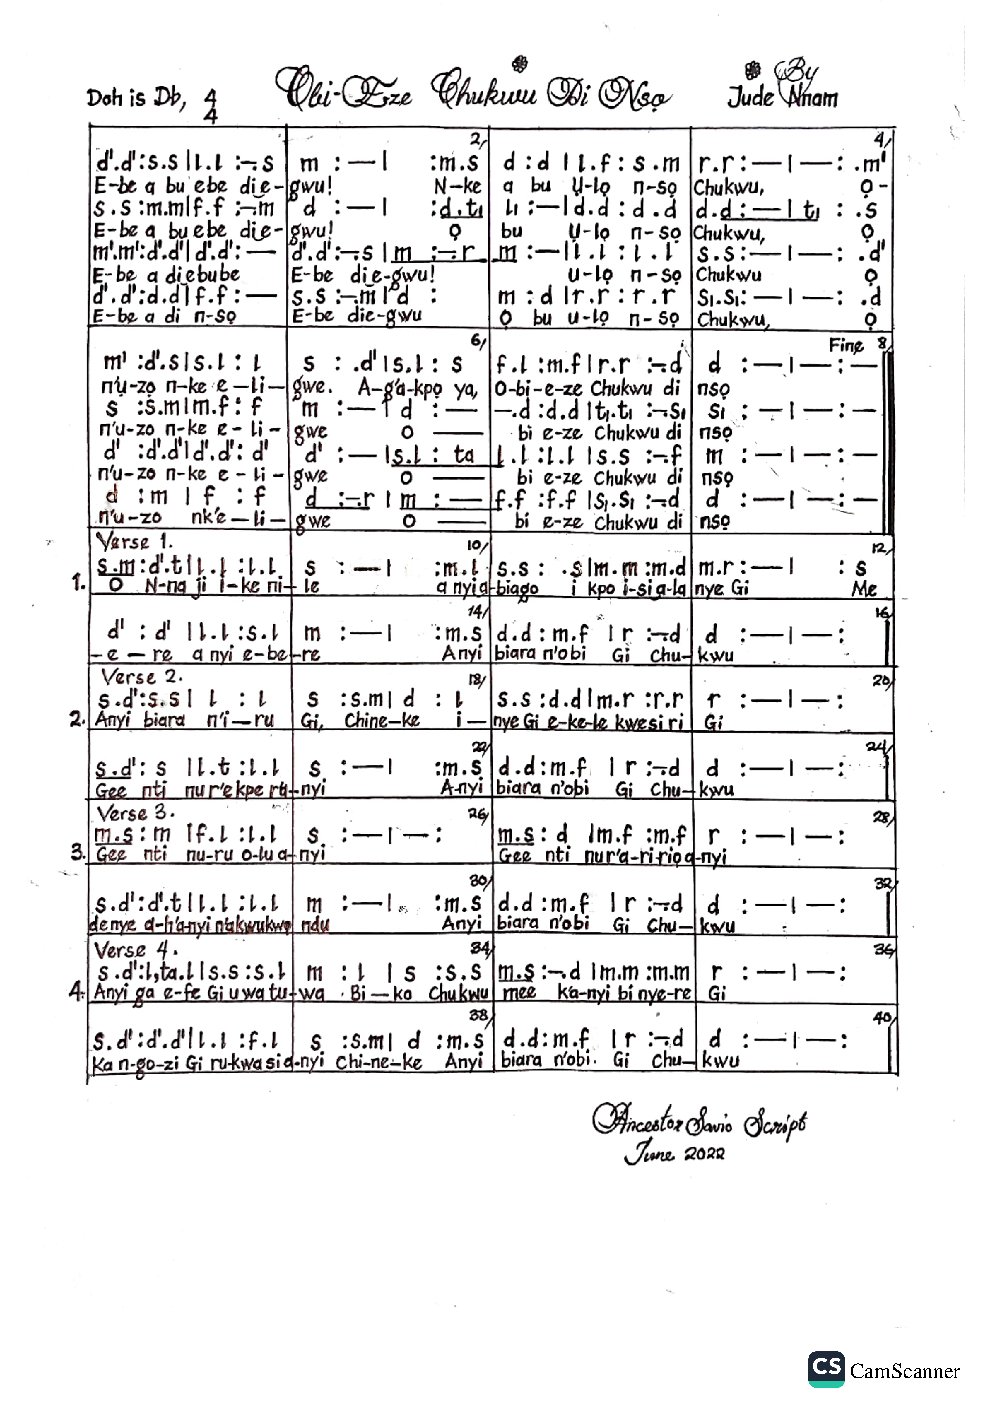 Doh is Db, 4/4 Obi-Eze Chukwu Di Nsọ By Jude Nnam
2/ 4/
d'.d':s.s|l.l :-.s m :—| :m.s d :d | l.f : s.m r.r:—|—: .m'
E-be a bu ebe di e-gwu! N-ke a bu Ụ-lọ n-sọ Chukwu, Ọ-
s.s:m.m|f.f :-.m d :—| :d.t₁ l₁ :—|d.d : d.d d.d:—| t₁ : .s
E-be a bu ebe di e-gwu! Ọ bu U-lọ n-sọ Chukwu, Ọ
m'.m':d'.d'|d'.d':— d'.d':-.s|m :-.r m :—|l.l : l.l s.s:—|—: .d'
E-be a di ebube E-be di e-gwu! u-lọ n-sọ Chukwu Ọ
d'.d':d.d|f.f:— s.s:-.m|d : m : d |r.r : r.r s₁.s₁:—|—: .d
E-be a di n-sọ E-be die-gwu Ọ bu u-lọ n-sọ Chukwu, Ọ
6/ Fine 8/
m' :d'.s|s.l : l s : .d'|s.l : s f.l :m.f|r.r :-.d d :—|—:—
n'ụ-zọ n-ke e-li-gwe. A-g'a-kpọ ya, O-bi-e-ze Chukwu di nsọ
s :s.m|m.f : f m :—| d :— —.d :d.d|t₁.t₁ :-.s₁ s₁ :—|—:—
n'u-zo n-ke e-li-gwe O — bi e-ze Chukwu di nsọ
d' :d'.d'|d'.d': d' d' :—|s.l : ta l.l :l.l |s.s :-.f m :—|—:—
n'u-zo n-ke e-li-gwe O — bi e-ze Chukwu di nsọ
d :m | f : f d :-.r | m :— f.f :f.f |s₁.s₁ :-.d d :—|—:—
n'u-zo nk'e-li-gwe O — bi e-ze Chukwu di nsọ
Verse 1. 10/ 12/
1. s.m:d'.t|l.l :l.l s :—| :m.l s.s : .s|m.m :m.d m.r:—| : s
O N-na ji i-ke ni-le a nyi a-biago i kpo i-si a-la nye Gi Me
14/ 16/
d' : d' | l.l :s.l m :—| :m.s d.d : m.f | r :-.d d :—|—:
-e-re a nyi e-be-re Anyi biara n'obi Gi Chu-kwu
Verse 2. 18/ 20/
2. s.d':s.s| l : l s :s.m| d : l s.s :d.d|m.r :r.r r :—|—:
Anyi biara n'i-ru Gi, Chine-ke i-nye Gi e-ke-le kwesi ri Gi
22/ 24/
s.d': s | l.t :l.l s :—| :m.s d.d:m.f | r :-.d d :—|—:
Gee nti nu r'ekpe ra-nyi A-nyi biara n'obi Gi Chu-kwu
Verse 3. 26/ 28/
3. m.s: m |f.l :l.l s. :—|—: m.s : d |m.f :m.f r :—|—:
Gee nti nu-ru o-lu a-nyi Gee nti nur'a-ri-rio a-nyi
30/ 32/
s.d':d'.t|l.l :l.l m :—| :m.s d.d :m.f | r :-.d d :—|—:
denye a-h'anyi n'akwukwo ndu Anyi biara n'obi Gi Chu-kwu
Verse 4. 34/ 36/
4. s.d':l,ta.l|s.s :s.l m : l | s :s.s m.s :-.d |m.m :m.m r :—|—:
Anyi ga e-fe Gi uwa tu-wa Bi-ko Chukwu mee ka-nyi bi nye-re Gi
38/ 40/
s.d':d'.d'|l.l :f.l s :s.m| d :m.s d.d:m.f | r :-.d d :—|—:
Ka n-go-zi Gi rukwasi a-nyi Chi-ne-ke Anyi biara n'obi. Gi Chu-kwu
Ancestor Savio Script
June 2022
CS CamScanner